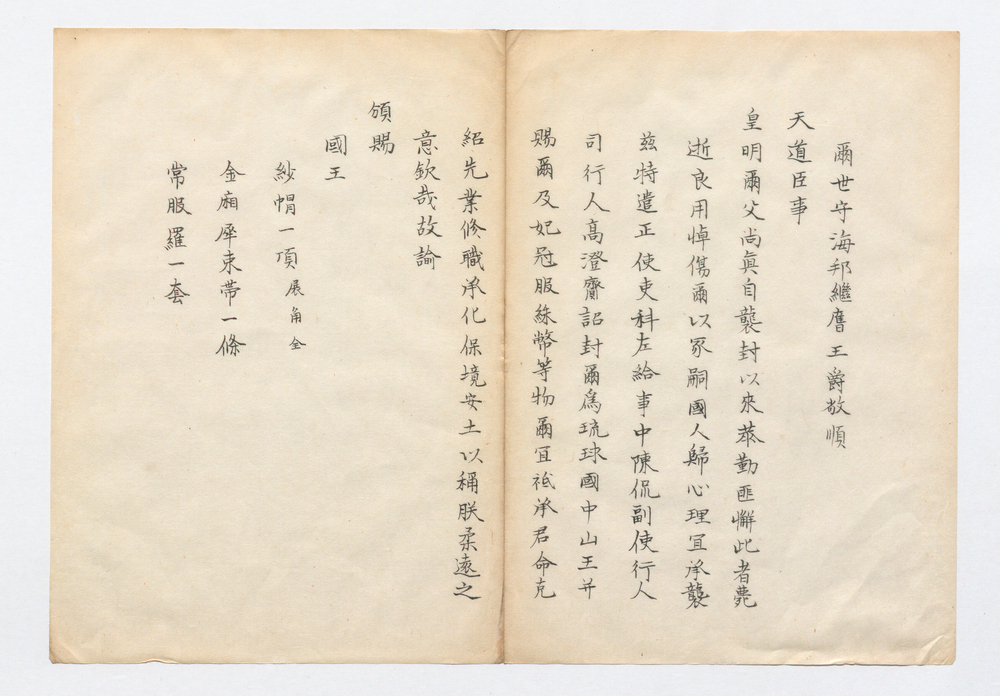 爾世守海邦繼膺王爵敬順
天道臣事
皇明爾父尚眞自襲封以來恭勤匪懈此者薨
逝良用悼傷爾以冢嗣國人歸心理宜承襲
茲特遣正使吏科左給事中陳侃副使行人
司行人高澄齎詔封爾爲琉球國中山王并
賜爾及妃冠服綵幣等物爾宜祗承君命克
紹先業修職承化保境安土以稱朕柔遠之
意欽哉故諭
頒賜
國王
紗帽一項展角全
金廂犀束帶一條
常服羅一套